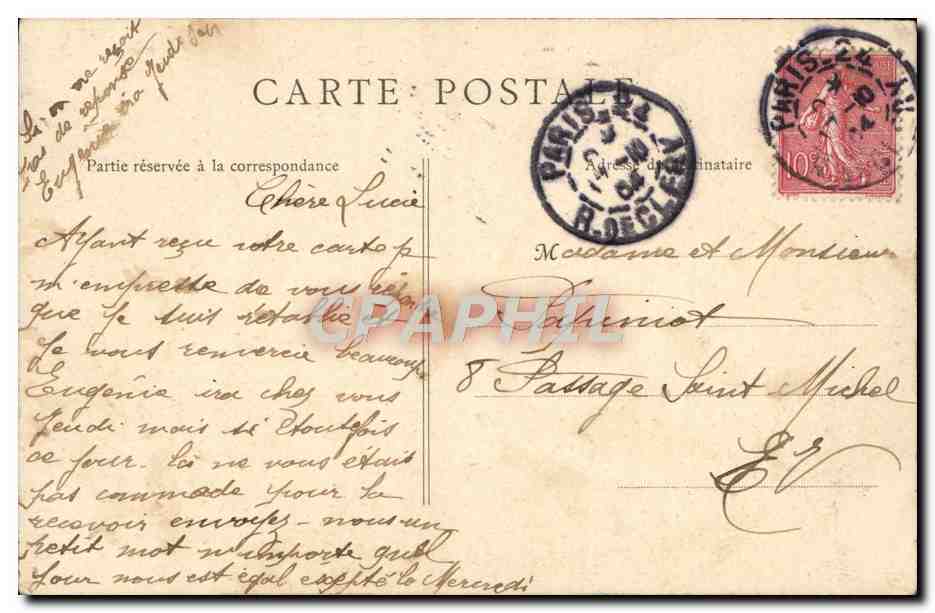 Si on ne reçoit
pas de réponse
Eugénie ira Jeudi soir
CARTE POSTALE
Partie réservée à la correspondance
Adresse du destinataire
PARIS_24
R. DE CLERY
04
PARIS_24
10
Chère Lucie
Ayant reçu votre carte je
m'empresse de vous
que je suis retablie et
Je vous remercie beaucoup
Eugénie ira chez vous
Jeudi mais si toutefois
ce jour là ne vous était
pas commode pour la
recevoir envoyez-nous un
petit mot n'importe quel
jour nous est égal excepté le Mercredi
Madame et Monsieur
Pahimot
8 Passage Saint Michel
EV
CPAPHIL